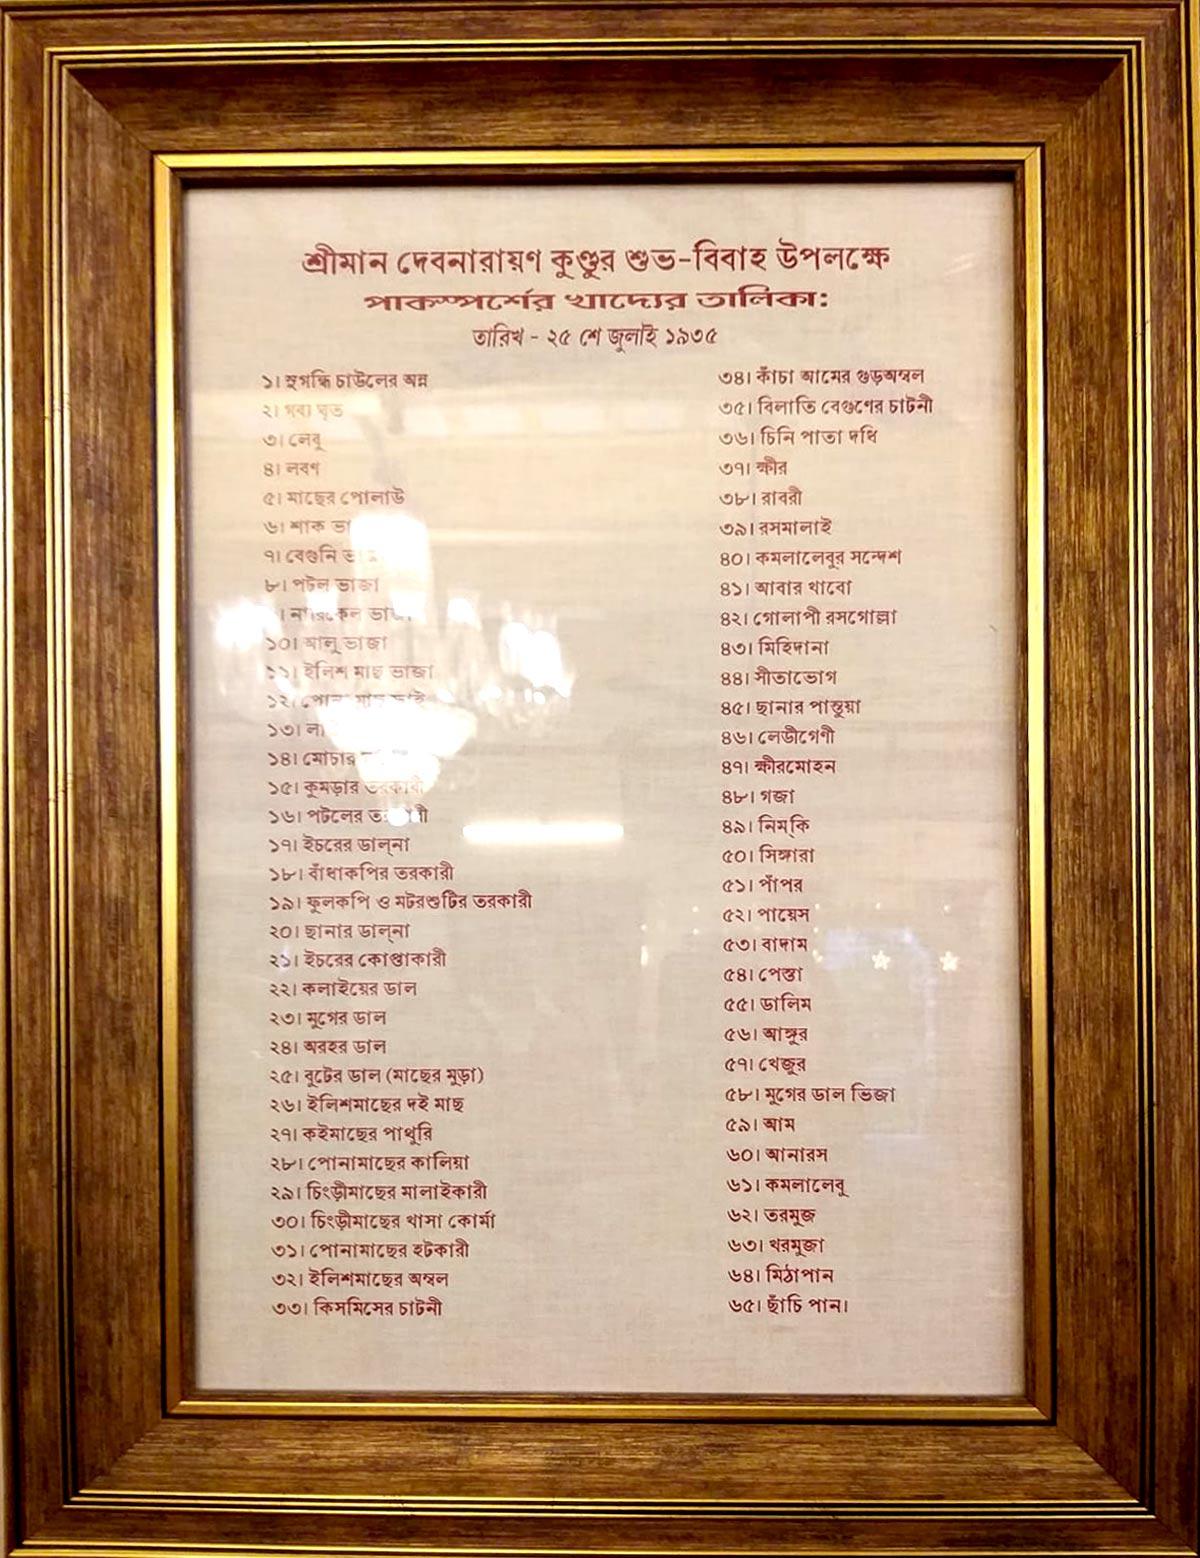 শ্রীমান দেবনারায়ণ কুণ্ডুর শুভ-বিবাহ উপলক্ষে
পাকস্পর্শের খাদ্যের তালিকা:
তারিখ - ২৫ শে জুলাই ১৯৩৫
১। সুগন্ধি চাউলের অন্ন
২। গব্য ঘৃত
৩। লেবু
৪। লবণ
৫। মাছের পোলাউ
৬। শাক
৭। বেগুনি
৮। পটল ভাজা
। নারিকেল ভাজা
১০। আলু ভাজা
১১। ইলিশ মাছ ভাজা
১২। পোনা মাছ
১৩।
১৪। মোচার
১৫। কুমড়ার তরকারী
১৬। পটলের তরকারী
১৭। ইচরের ডাল্‌না
১৮। বাঁধাকপির তরকারী
১৯। ফুলকপি ও মটরশুটির তরকারী
২০। ছানার ডাল্‌না
২১। ইচরের কোপ্তাকারী
২২। কলাইয়ের ডাল
২৩। মুগের ডাল
২৪। অরহর ডাল
২৫। বুটের ডাল (মাছের মুড়া)
২৬। ইলিশমাছের দই মাছ
২৭। কইমাছের পাথুরি
২৮। পোনামাছের কালিয়া
২৯। চিংড়ীমাছের মালাইকারী
৩০। চিংড়ীমাছের খাসা কোর্মা
৩১। পোনামাছের হটকারী
৩২। ইলিশমাছের অম্বল
৩৩। কিসমিসের চাটনী
৩৪। কাঁচা আমের গুড়অম্বল
৩৫। বিলাতি বেগুণের চাটনী
৩৬। চিনি পাতা দধি
৩৭। ক্ষীর
৩৮। রাবরী
৩৯। রসমালাই
৪০। কমলালেবুর সন্দেশ
৪১। আবার খাবো
৪২। গোলাপী রসগোল্লা
৪৩। মিহিদানা
৪৪। সীতাভোগ
৪৫। ছানার পান্তুয়া
৪৬। লেডীগেণী
৪৭। ক্ষীরমোহন
৪৮। গজা
৪৯। নিম্‌কি
৫০। সিঙ্গারা
৫১। পাঁপর
৫২। পায়েস
৫৩। বাদাম
৫৪। পেস্তা
৫৫। ডালিম
৫৬। আঙ্গুর
৫৭। খেজুর
৫৮। মুগের ডাল ভিজা
৫৯। আম
৬০। আনারস
৬১। কমলালেবু
৬২। তরমুজ
৬৩। খরমুজা
৬৪। মিঠাপান
৬৫। ছাঁচি পান।